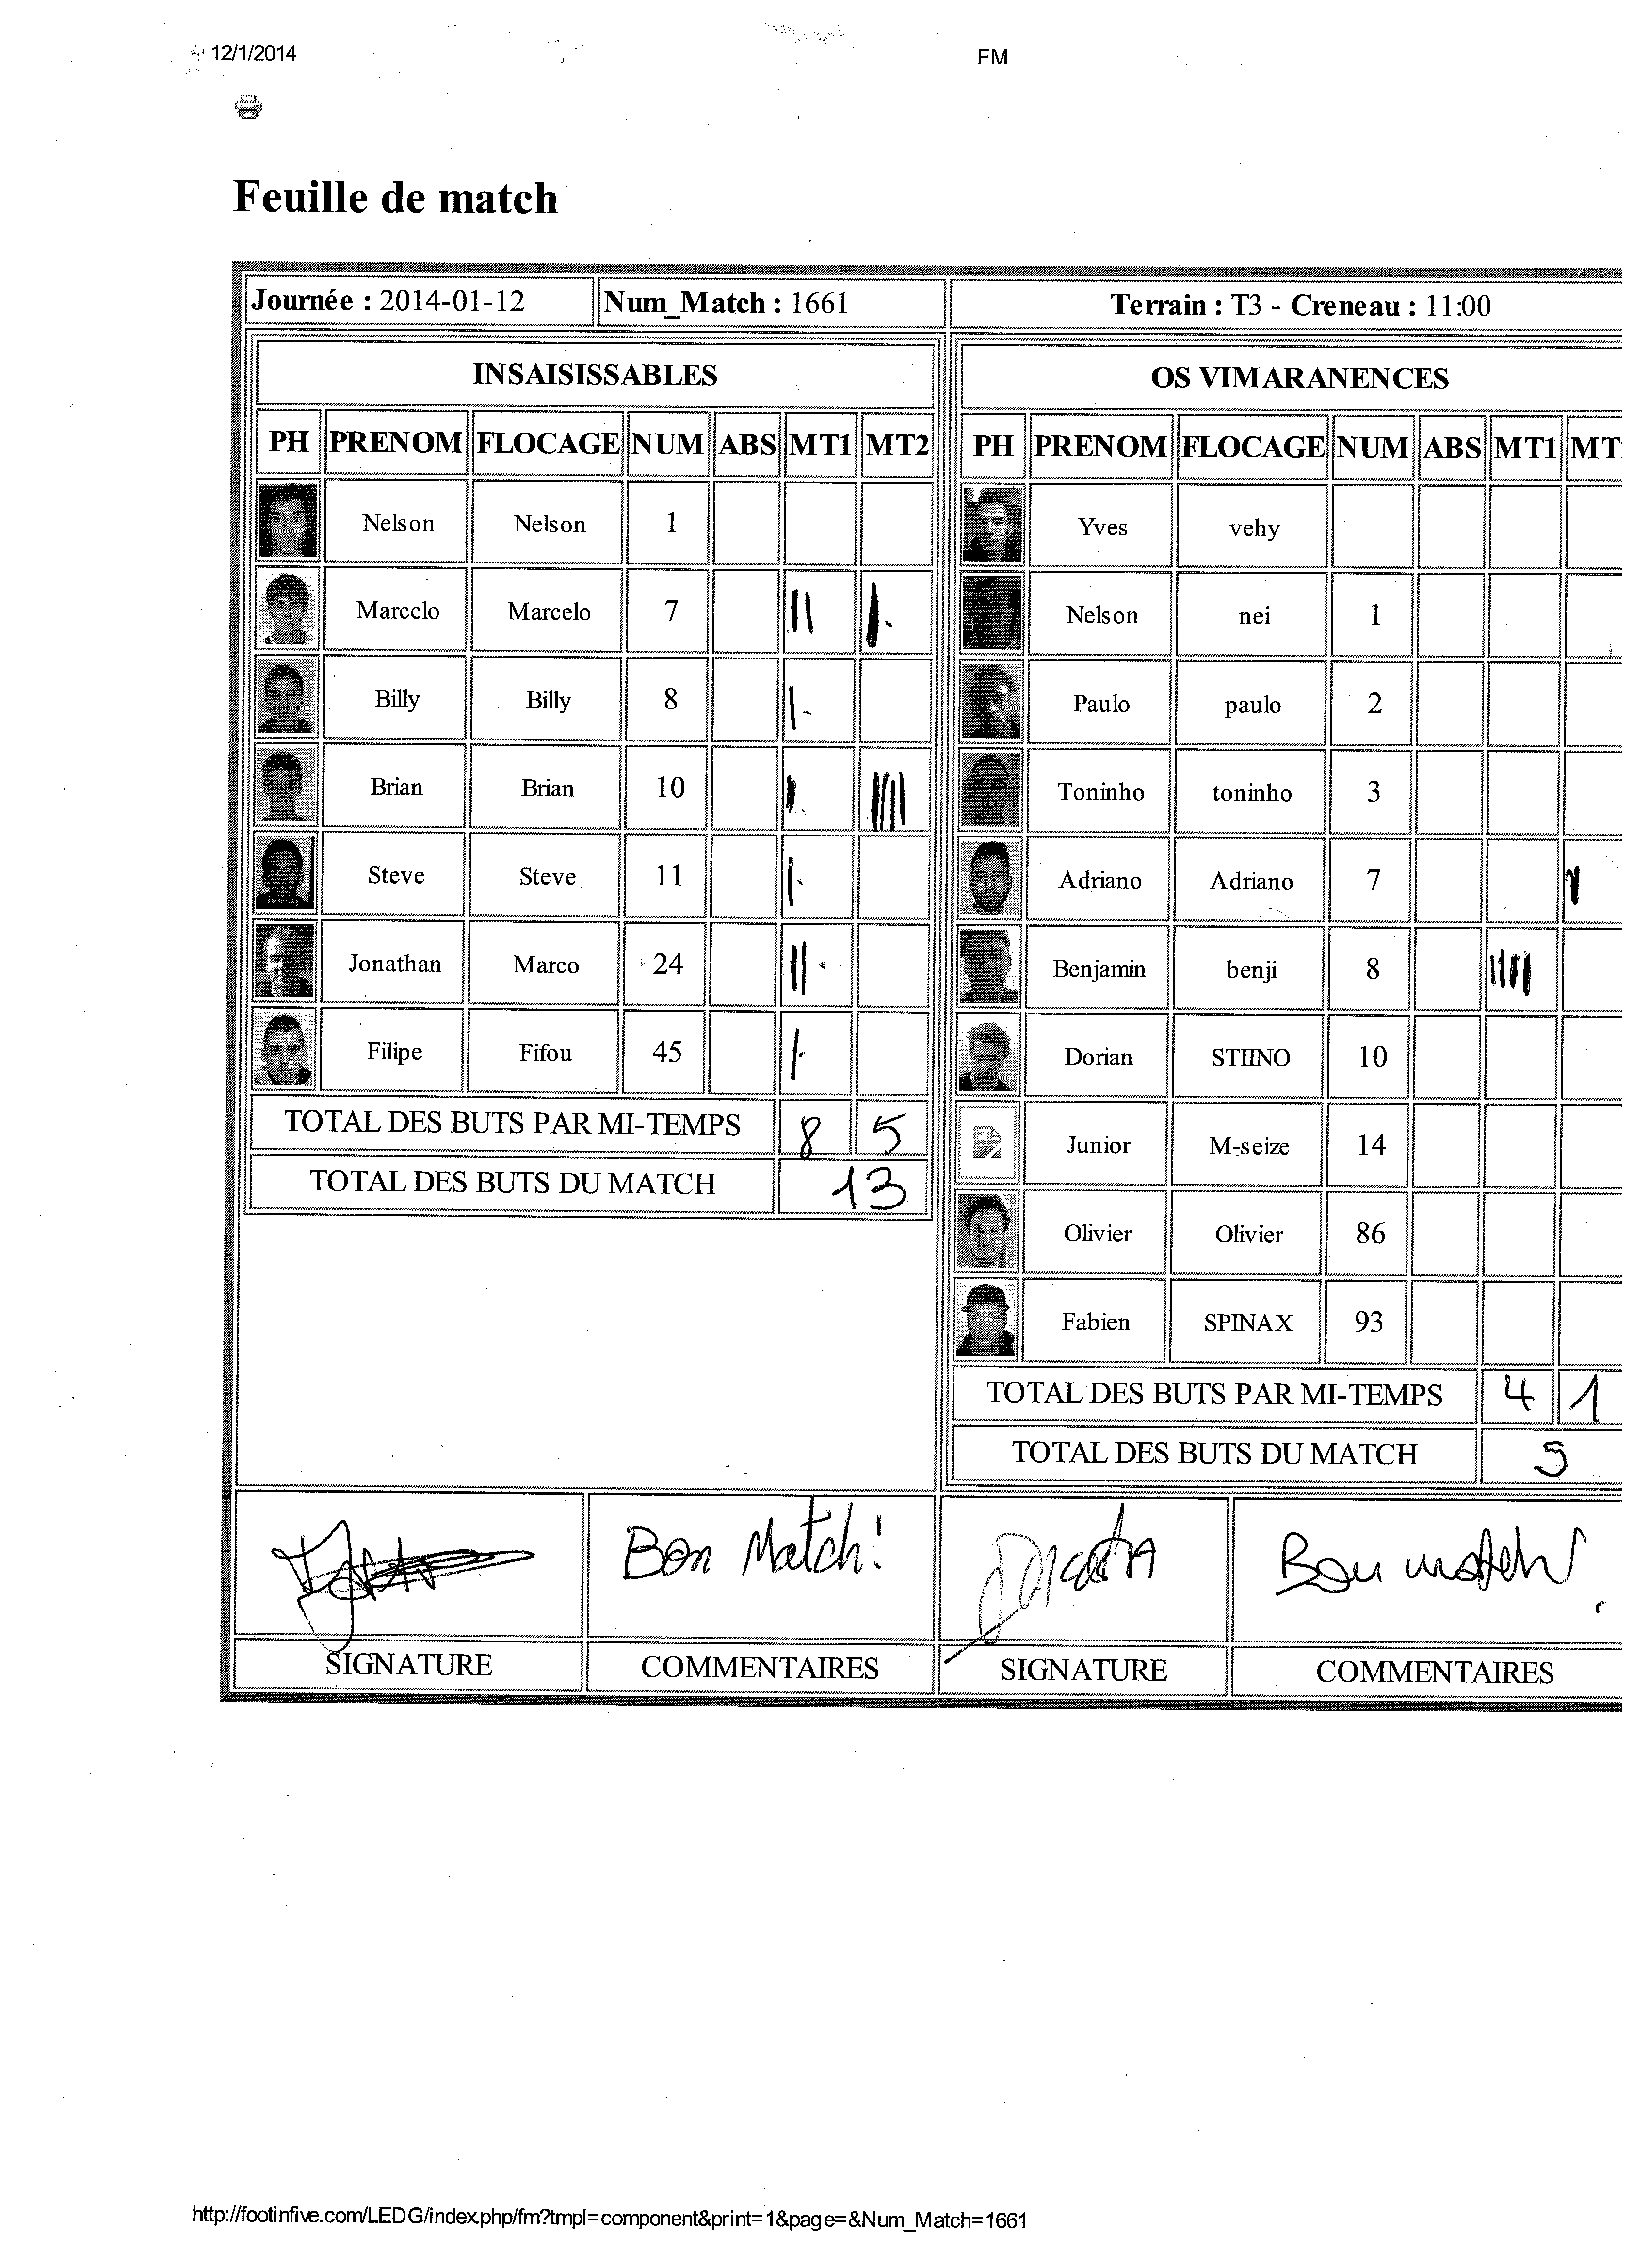 12/1/2014 FM
Feuille de match
Journée : 2014-01-12 Num_Match : 1661 Terrain : T3 - Creneau : 11:00
INSAISISSABLES
PH PRENOM FLOCAGE NUM ABS MT1 MT2
Nelson Nelson 1
Marcelo Marcelo 7
Billy Billy 8
Brian Brian 10
Steve Steve 11
Jonathan Marco 24
Filipe Fifou 45
TOTAL DES BUTS PAR MI-TEMPS 8 5
TOTAL DES BUTS DU MATCH 13
OS VIMARANENCES
PH PRENOM FLOCAGE NUM ABS MT1 MT
Yves vehy
Nelson nei 1
Paulo paulo 2
Toninho toninho 3
Adriano Adriano 7
Benjamin benji 8
Dorian STIINO 10
Junior M-seize 14
Olivier Olivier 86
Fabien SPINAX 93
TOTAL DES BUTS PAR MI-TEMPS 4 1
TOTAL DES BUTS DU MATCH 5
Bon Match! Bon match!
SIGNATURE COMMENTAIRES SIGNATURE COMMENTAIRES
http://footinfive.com/LEDG/index.php/fm?tmpl=component&print=1&page=&Num_Match=1661